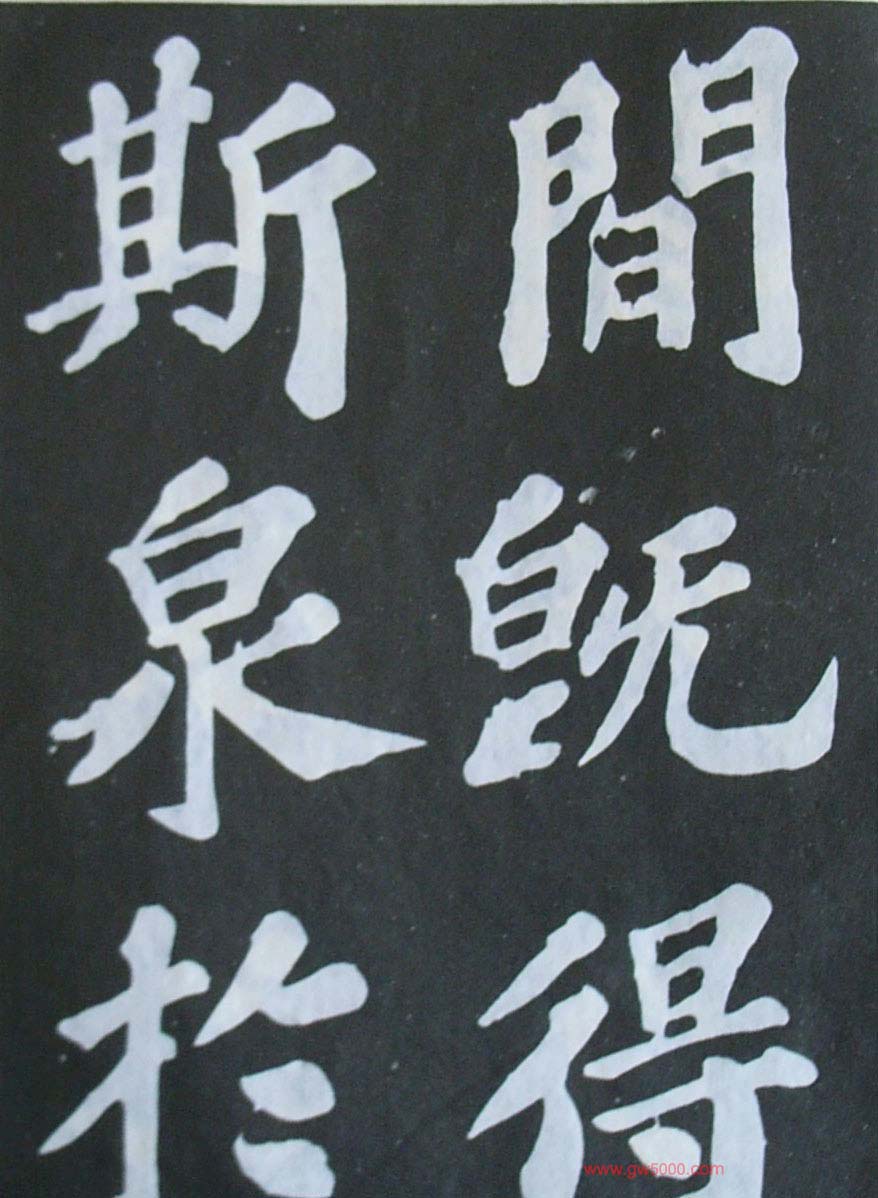 間既得
斯泉於
www.gw5000.com